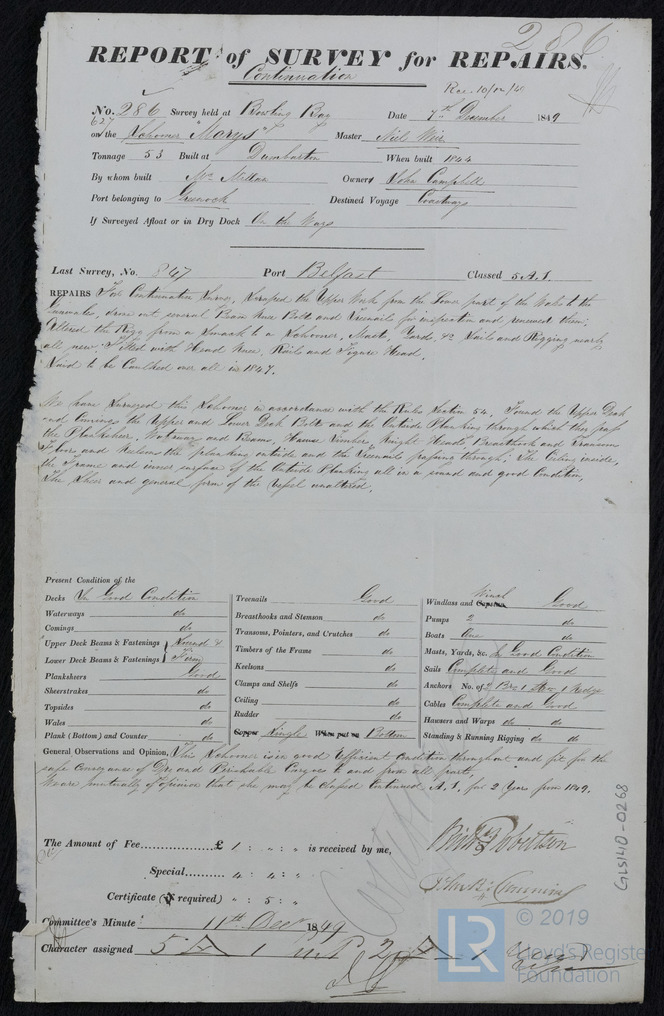 286
REPORT of SURVEY for REPAIRS.
for Continuation
Rec. 10/12/49
No. 286 Survey held at Bowling Bay Date 7th December 1849
627
on the Schooner "Marys" Master Niel Weir
Tonnage 53 Built at Dumbarton When built 1844
By whom built Mc Millan Owner John Campbell
Port belonging to Greenock Destined Voyage Coastways
If Surveyed Afloat or in Dry Dock On the Ways
Last Survey, No. 847 Port Belfast Classed 5 A.1.
REPAIRS For Continuation Survey, Scraped the Upper Work from the Lower part of the Wales to the
Gunwales, drove out several Beam Knee Bolts and Treenails for inspection and renewed them;
Altered the Rigg from a Smack to a Schooner. Masts, Yards, &c Sails and Rigging nearly
all new. Fitted with Head Knee, Rails and Figure Head.
Said to be Caulked over all in 1847.
We have Surveyed this Schooner in accordance with the Rules Section 54. Found the Upper Deck
and Comings the Upper and Lower Deck Bolts and the Outside Planking through which they pass
the Plansheer, Waterway and Beams, Hawse Timbers, Knight Heads, Breasthook and Transom
Floors and Keelson the planking outside and the Treenails passing through; The Ceiling inside,
the Frame and inner surface of the Outside Planking all in a sound and good Condition,
The Sheer and general form of the Vessel unaltered.
Present Condition of the
Decks In Good Condition
Waterways do
Comings do
Upper Deck Beams & Fastenings Sound &
Lower Deck Beams & Fastenings Firm
Planksheers Good
Sheerstrakes do
Topsides do
Wales do
Plank (Bottom) and Counter do
Treenails Good
Breasthooks and Stemson do
Transoms, Pointers, and Crutches do
Timbers of the Frame do
Keelsons do
Clamps and Shelfs do
Ceiling do
Rudder do
Copper Single When put on Bottom
Windlass and Capstan Winch Good
Pumps 2 do
Boats One do
Masts, Yards, &c. In Good Condition
Sails Complete and Good
Anchors No. of 2 Brs 1 Strm 1 Kedge
Cables Complete and Good
Hawsers and Warps do do
Standing & Running Rigging do do
General Observations and Opinion, This Schooner is in good Efficient Condition throughout and fit for the
safe conveyance of Dry and Perishable Cargoes to and from all parts,
We are mutually of opinion that she may be Classed Continued A.1. for 2 Years from 1849.
The Amount of Fee £ 1 : " : " is received by me,
Special 4 : 4 : "
Certificate (if required) " : 5 : "
Committee's Minute 11th Decr 1849
Character assigned 5 A 1
GLS140-0268
© 2019
LR
Lloyd's Register
Foundation